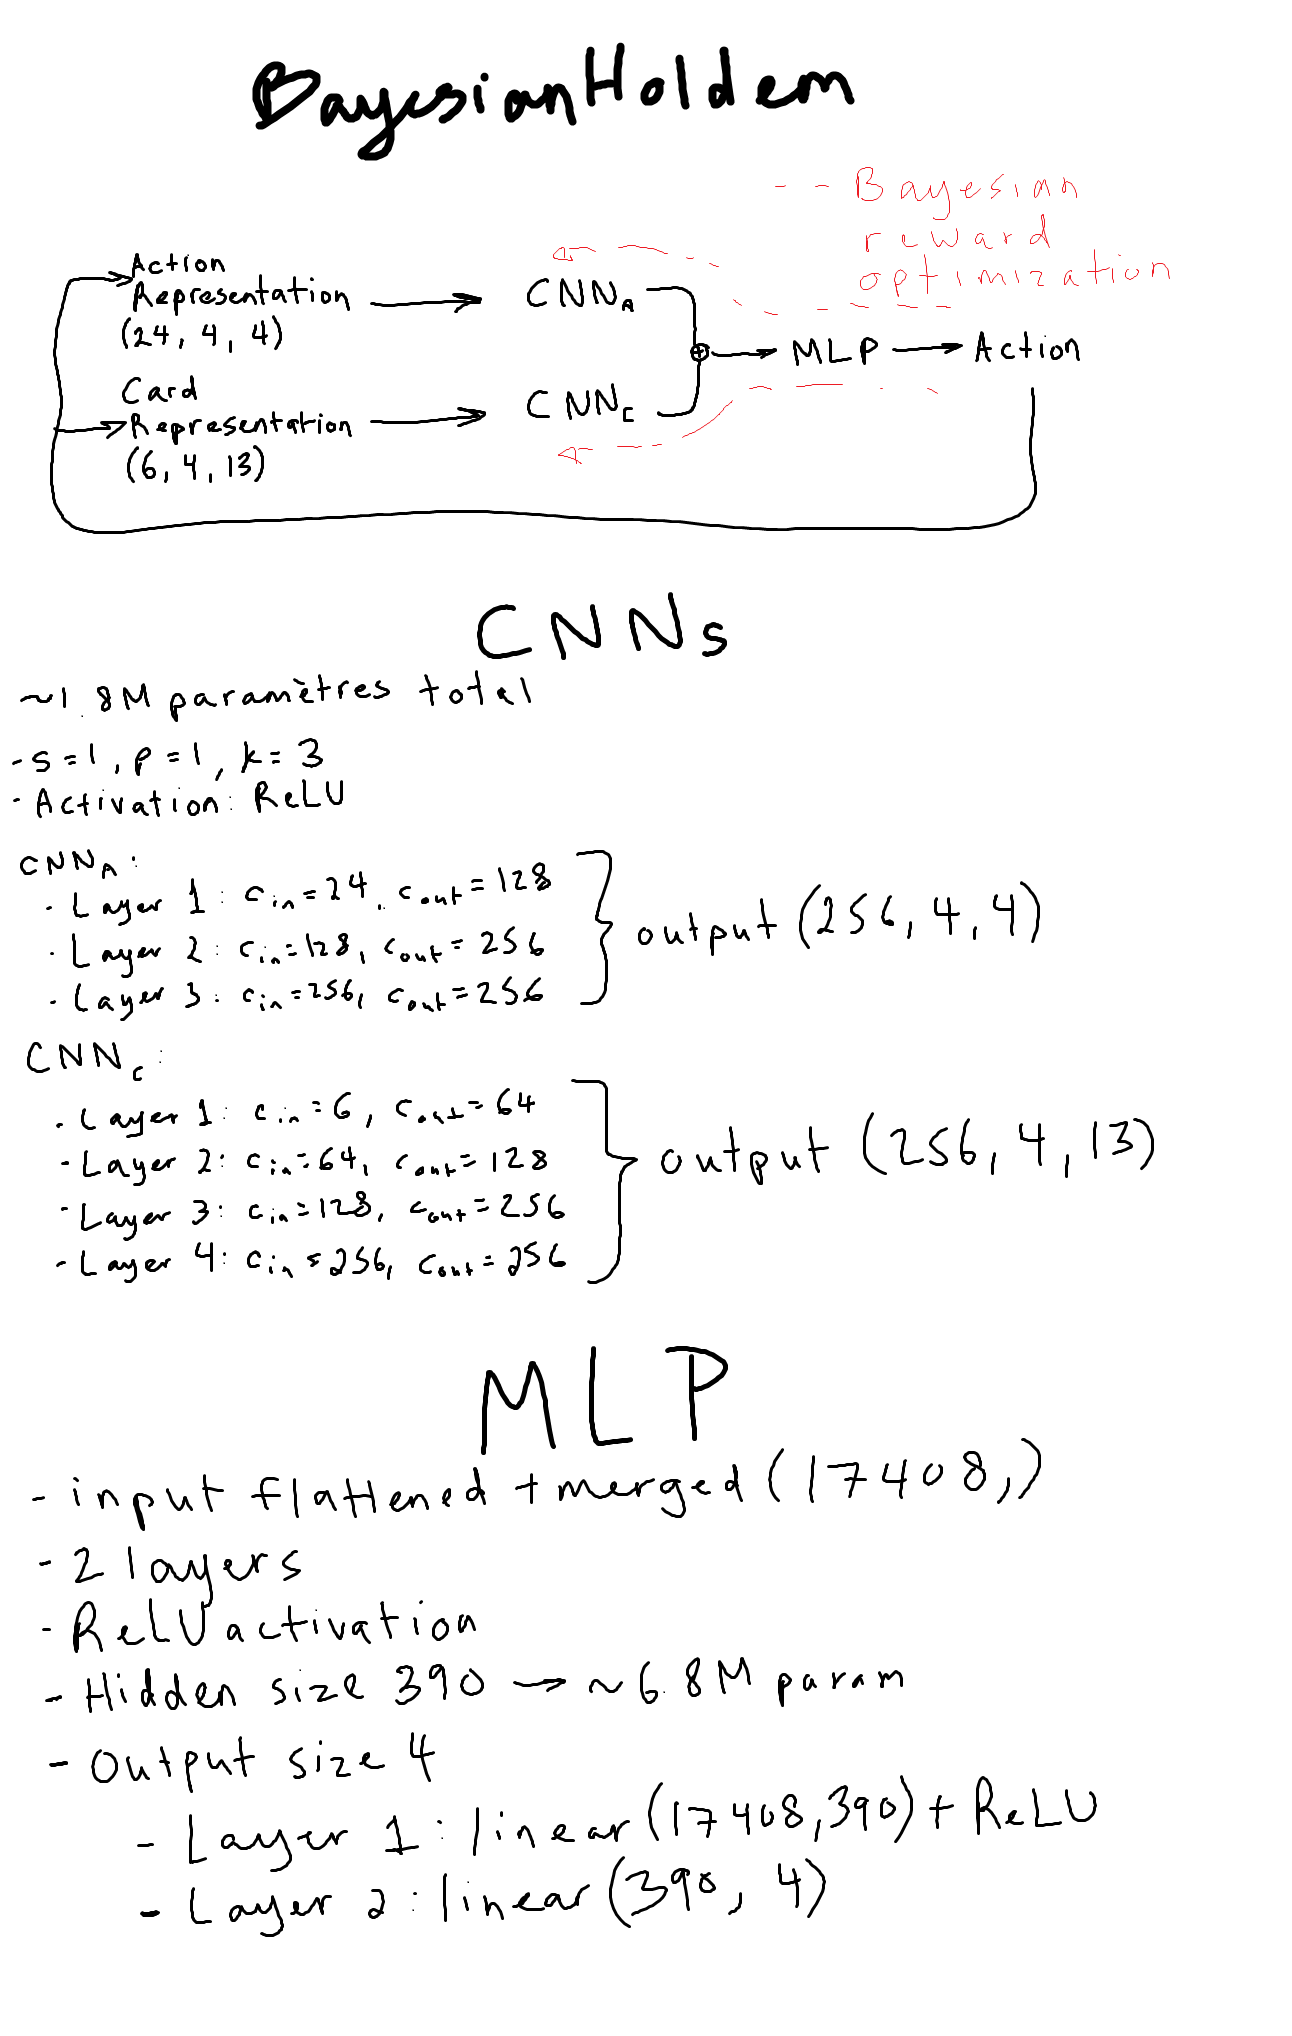 BayesianHoldem
-- Bayesian
reward
optimization
Action
Representation
(24, 4, 4)
CNN_A
Card
Representation
(6, 4, 13)
CNN_C
MLP
Action
CNNs
~1.8M paramètres total
- s=1, p=1, k=3
- Activation: ReLU
CNN_A:
- Layer 1: c_in=24, c_out=128
- Layer 2: c_in=128, c_out=256
- Layer 3: c_in=256, c_out=256
output (256, 4, 4)
CNN_C:
- Layer 1: c_in=6, c_out=64
- Layer 2: c_in=64, c_out=128
- Layer 3: c_in=128, c_out=256
- Layer 4: c_in=256, c_out=256
output (256, 4, 13)
MLP
- input flattened + merged (17408,)
- 2 layers
- ReLU activation
- Hidden size 390 → ~6.8M param
- Output size 4
- Layer 1: linear(17408,390) + ReLU
- Layer 2: linear(390, 4)